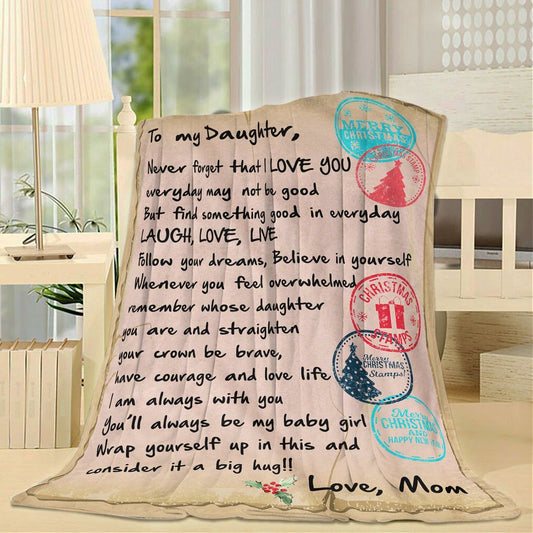 To my Daughter,
Never forget that I LOVE YOU
everyday may not be good
But find something good in everyday
LAUGH, LOVE, LIVE
Follow your dreams, Believe in yourself
Whenever you feel overwhelmed
remember whose daughter
you are and straighten
your crown be brave,
have courage and love life
I am always with you
You'll always be my baby girl
Wrap yourself up in this and
consider it a big hug!!
Love, Mom
MERRY
CHRISTMAS
STAMP
CHRISTMAS
STAMPS
Merry
CHRISTMAS
Stamps!
Merry
CHRISTMAS
AND
HAPPY NEW